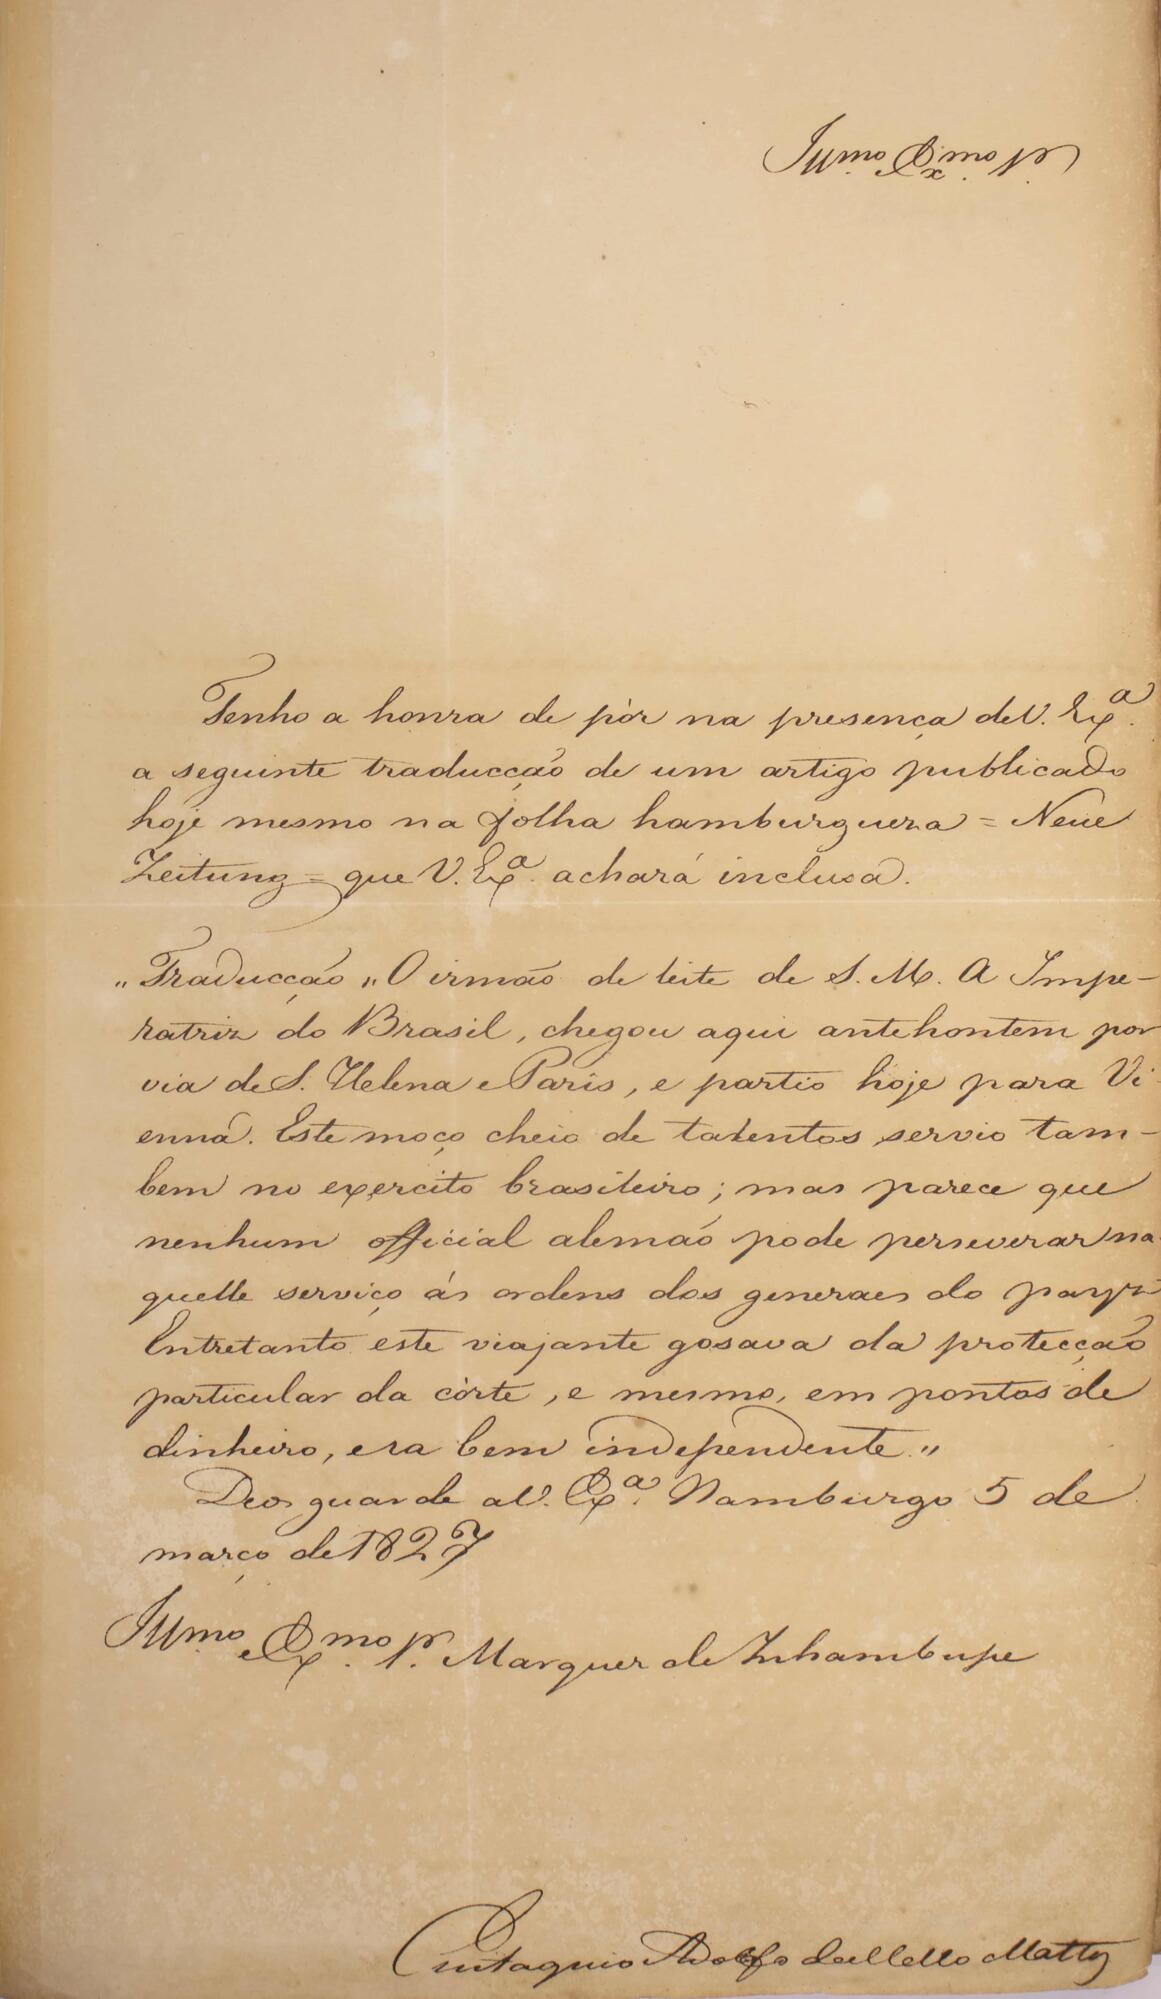 Illmo. Exmo. Sr.
Tenho a honra de pôr na presença de V. Exa.
a seguinte traducção de um artigo publicado
hoje mesmo na folha hamburgueza = Neue
Zeitung = que V. Exa. achará inclusa.
„ Traducção „ O irmão de leite de S. M. A Impe-
ratriz do Brasil, chegou aqui antehontem por
via de S. Helena e Paris, e partio hoje para Vi-
enna. Este moço cheio de talentos servio tam-
bem no exercito brasileiro; mas parece que
nenhum official alemão pode perseverar na-
quelle serviço ás ordens dos generaes do payz
Entretanto este viajante gosava da protecção
particular da côrte, e mesmo, em pontos de
dinheiro, era bem independente. „
Deos guarde a V. Exa. Hamburgo 5 de
março de 1827
Illmo. Exmo. Sr. Marquez de Inhambupe
Eustaquio Adolfo de Mello Mattos